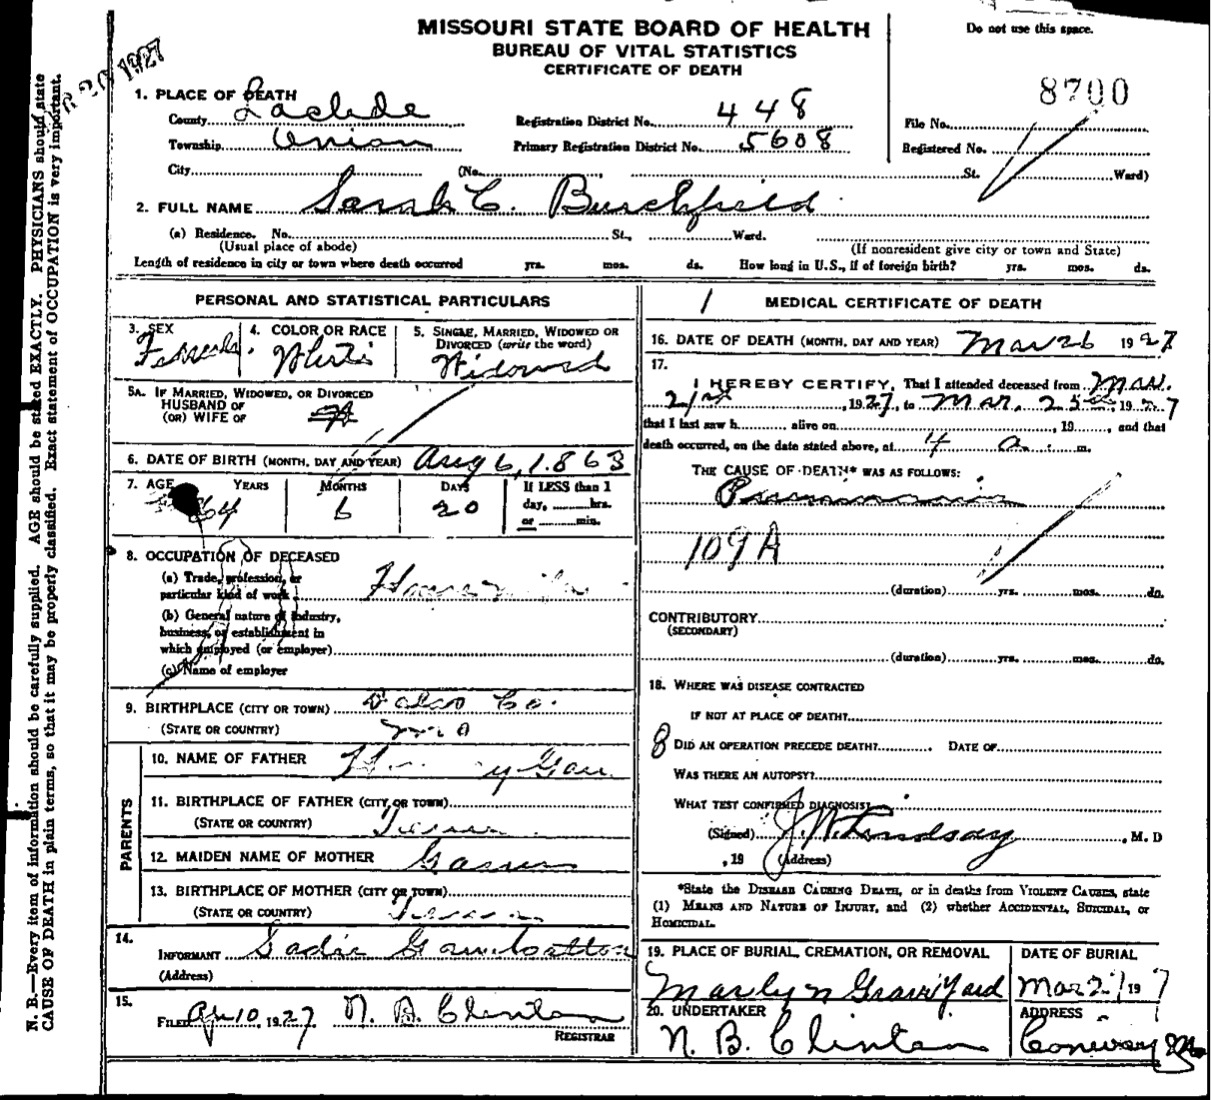 MISSOURI STATE BOARD OF HEALTH
BUREAU OF VITAL STATISTICS
CERTIFICATE OF DEATH
Do not use this space.
20 1927
8700
1. PLACE OF DEATH
County Laclede
Registration District No. 448
File No.
Township Union
Primary Registration District No. 5608
Registered No.
City (No. St. Ward)
2. FULL NAME Sarah C. Burchfield
(a) Residence. No. St., Ward.
(Usual place of abode)
(If nonresident give city or town and State)
Length of residence in city or town where death occurred yrs. mos. ds. How long in U.S., if of foreign birth? yrs. mos. ds.
PERSONAL AND STATISTICAL PARTICULARS
3. SEX
4. COLOR OR RACE
5. SINGLE, MARRIED, WIDOWED OR
DIVORCED (write the word)
Female White Widowed
5A. IF MARRIED, WIDOWED, OR DIVORCED
HUSBAND OF
(OR) WIFE OF
6. DATE OF BIRTH (MONTH, DAY AND YEAR) Aug 6, 1863
7. AGE YEARS MONTHS DAYS If LESS than 1
day, hrs.
or min.
64 6 20
8. OCCUPATION OF DECEASED
(a) Trade, profession, or
particular kind of work Housewife
(b) General nature of industry,
business, or establishment in
which employed (or employer)
(c) Name of employer
9. BIRTHPLACE (CITY OR TOWN) Dallas Co.
(STATE OR COUNTRY) Mo
PARENTS
10. NAME OF FATHER
11. BIRTHPLACE OF FATHER (CITY OR TOWN)
(STATE OR COUNTRY) Tenn
12. MAIDEN NAME OF MOTHER
13. BIRTHPLACE OF MOTHER (CITY OR TOWN)
(STATE OR COUNTRY) Tenn
14.
INFORMANT Sadie
(Address)
15.
FILED Apr 10, 1927 N. B. Clinton
REGISTRAR
1 MEDICAL CERTIFICATE OF DEATH
16. DATE OF DEATH (MONTH, DAY AND YEAR) Mar 26 1927
17.
I HEREBY CERTIFY, That I attended deceased from Mar.
21st, 1927, to Mar. 25th, 1927
that I last saw h alive on, 19, and that
death occurred, on the date stated above, at 4 a. m.
THE CAUSE OF DEATH* WAS AS FOLLOWS:
Pneumonia
109A
(duration) yrs. mos. ds.
CONTRIBUTORY
(SECONDARY)
(duration) yrs. mos. ds.
18. WHERE WAS DISEASE CONTRACTED
IF NOT AT PLACE OF DEATH?
8 DID AN OPERATION PRECEDE DEATH? DATE OF
WAS THERE AN AUTOPSY?
WHAT TEST CONFIRMED DIAGNOSIS?
(Signed) J. W. Lindsay, M. D
, 19 (Address)
*State the DISEASE CAUSING DEATH, or in deaths from VIOLENT CAUSES, state
(1) MEANS AND NATURE OF INJURY, and (2) whether ACCIDENTAL, SUICIDAL, or
HOMICIDAL.
19. PLACE OF BURIAL, CREMATION, OR REMOVAL
DATE OF BURIAL
Marlyn Graveyard Mar 27 1927
20. UNDERTAKER
ADDRESS
N. B. Clinton Conway Mo.
N. B.—Every item of information should be carefully supplied. AGE should be stated EXACTLY. PHYSICIANS should state
CAUSE OF DEATH in plain terms, so that it may be properly classified. Exact statement of OCCUPATION is very important.